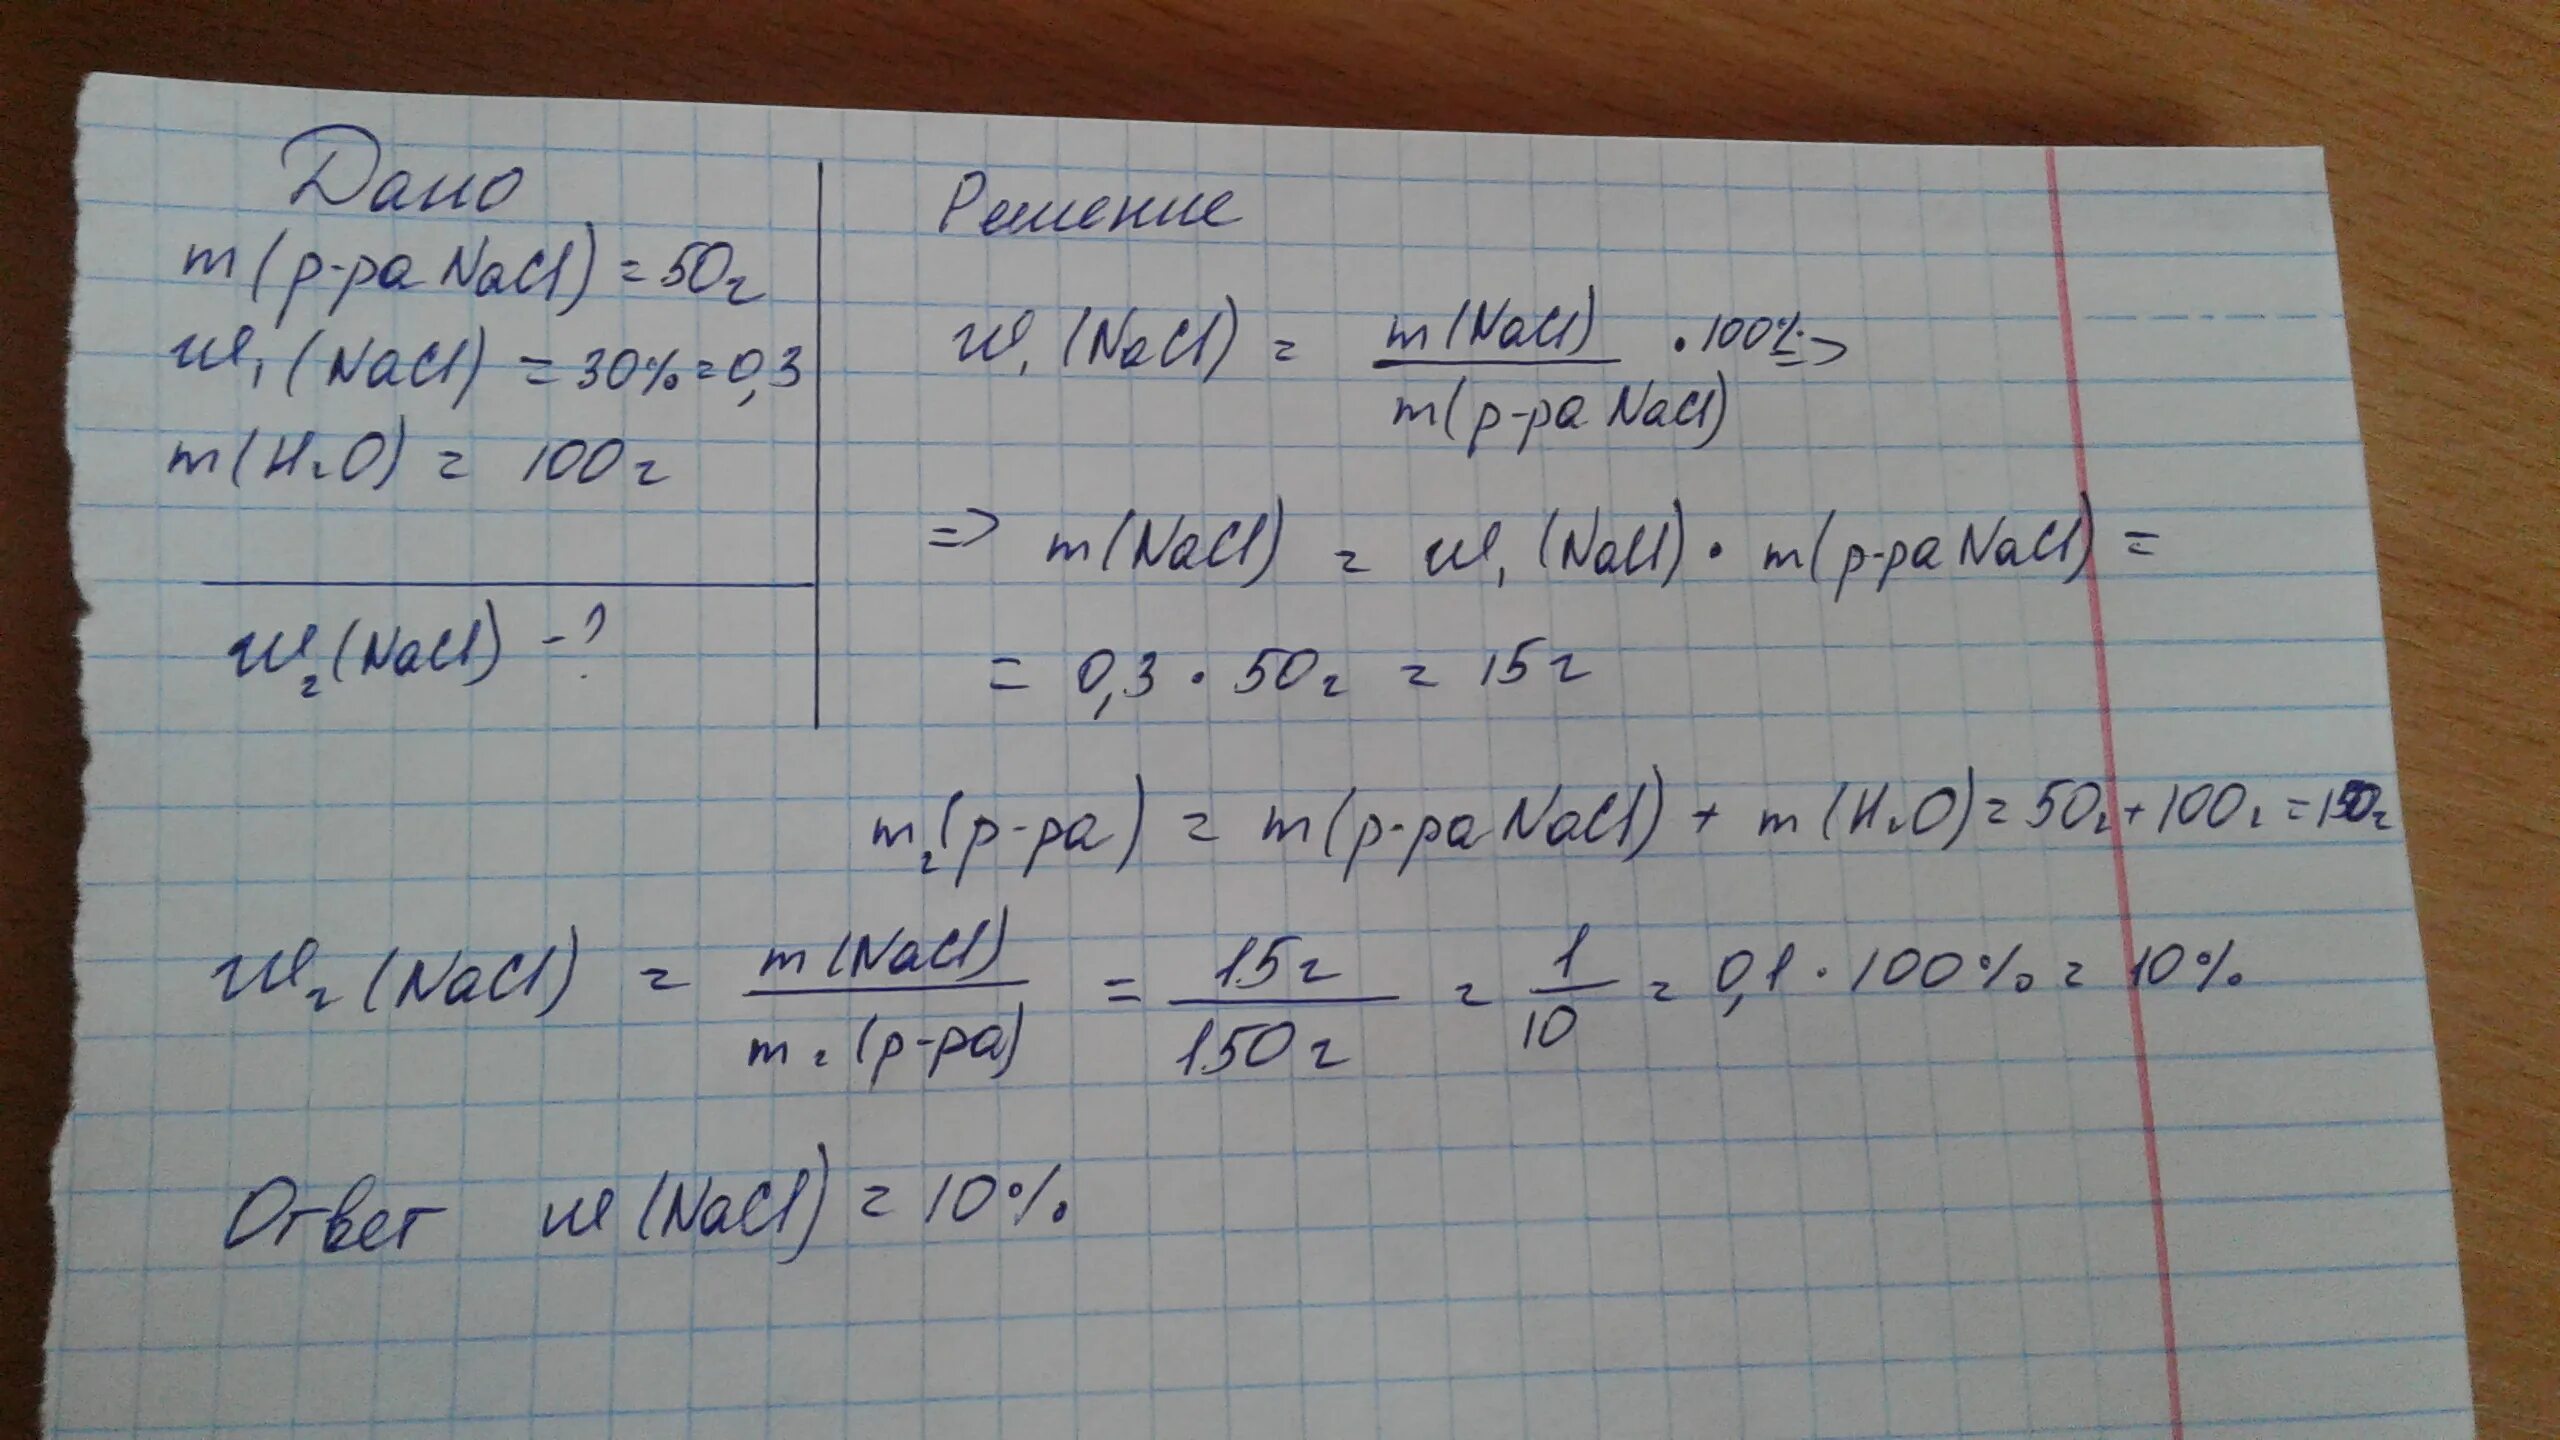 Дано
m(р-ра NaCl) = 50г
w₁(NaCl) = 30% = 0,3
m(H₂O) = 100г
w₂(NaCl) - ?
Решение
w₁(NaCl) = m(NaCl) / m(р-ра NaCl) · 100% =>
=> m(NaCl) = w₁(NaCl) · m(р-ра NaCl) =
= 0,3 · 50г = 15г
m₂(р-ра) = m(р-ра NaCl) + m(H₂O) = 50г + 100г = 150г
w₂(NaCl) = m(NaCl) / m₂(р-ра) = 15г / 150г = 1 / 10 = 0,1 · 100% = 10%
Ответ w(NaCl) = 10%